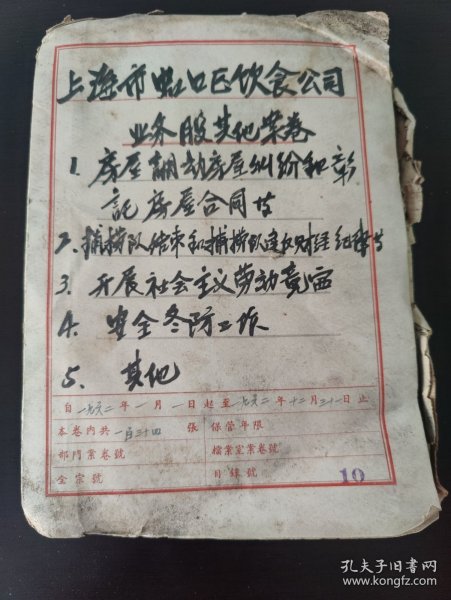 上海市虹口区饮食公司
业务股其他案卷
1. 房屋翻动房屋纠纷和
房屋合同等
2. 捕捞队结束和捕捞队违反财经纪律等
3. 开展社会主义劳动竞赛
4. 安全冬防工作
5. 其他
自一九六二年一月一日起至一九六二年十二月三十一日止
本卷内共一百三十四張 保管年限
部門案卷號 檔案室案卷號
全宗號 目錄號 10
孔夫子旧书网
www.kongfz.com